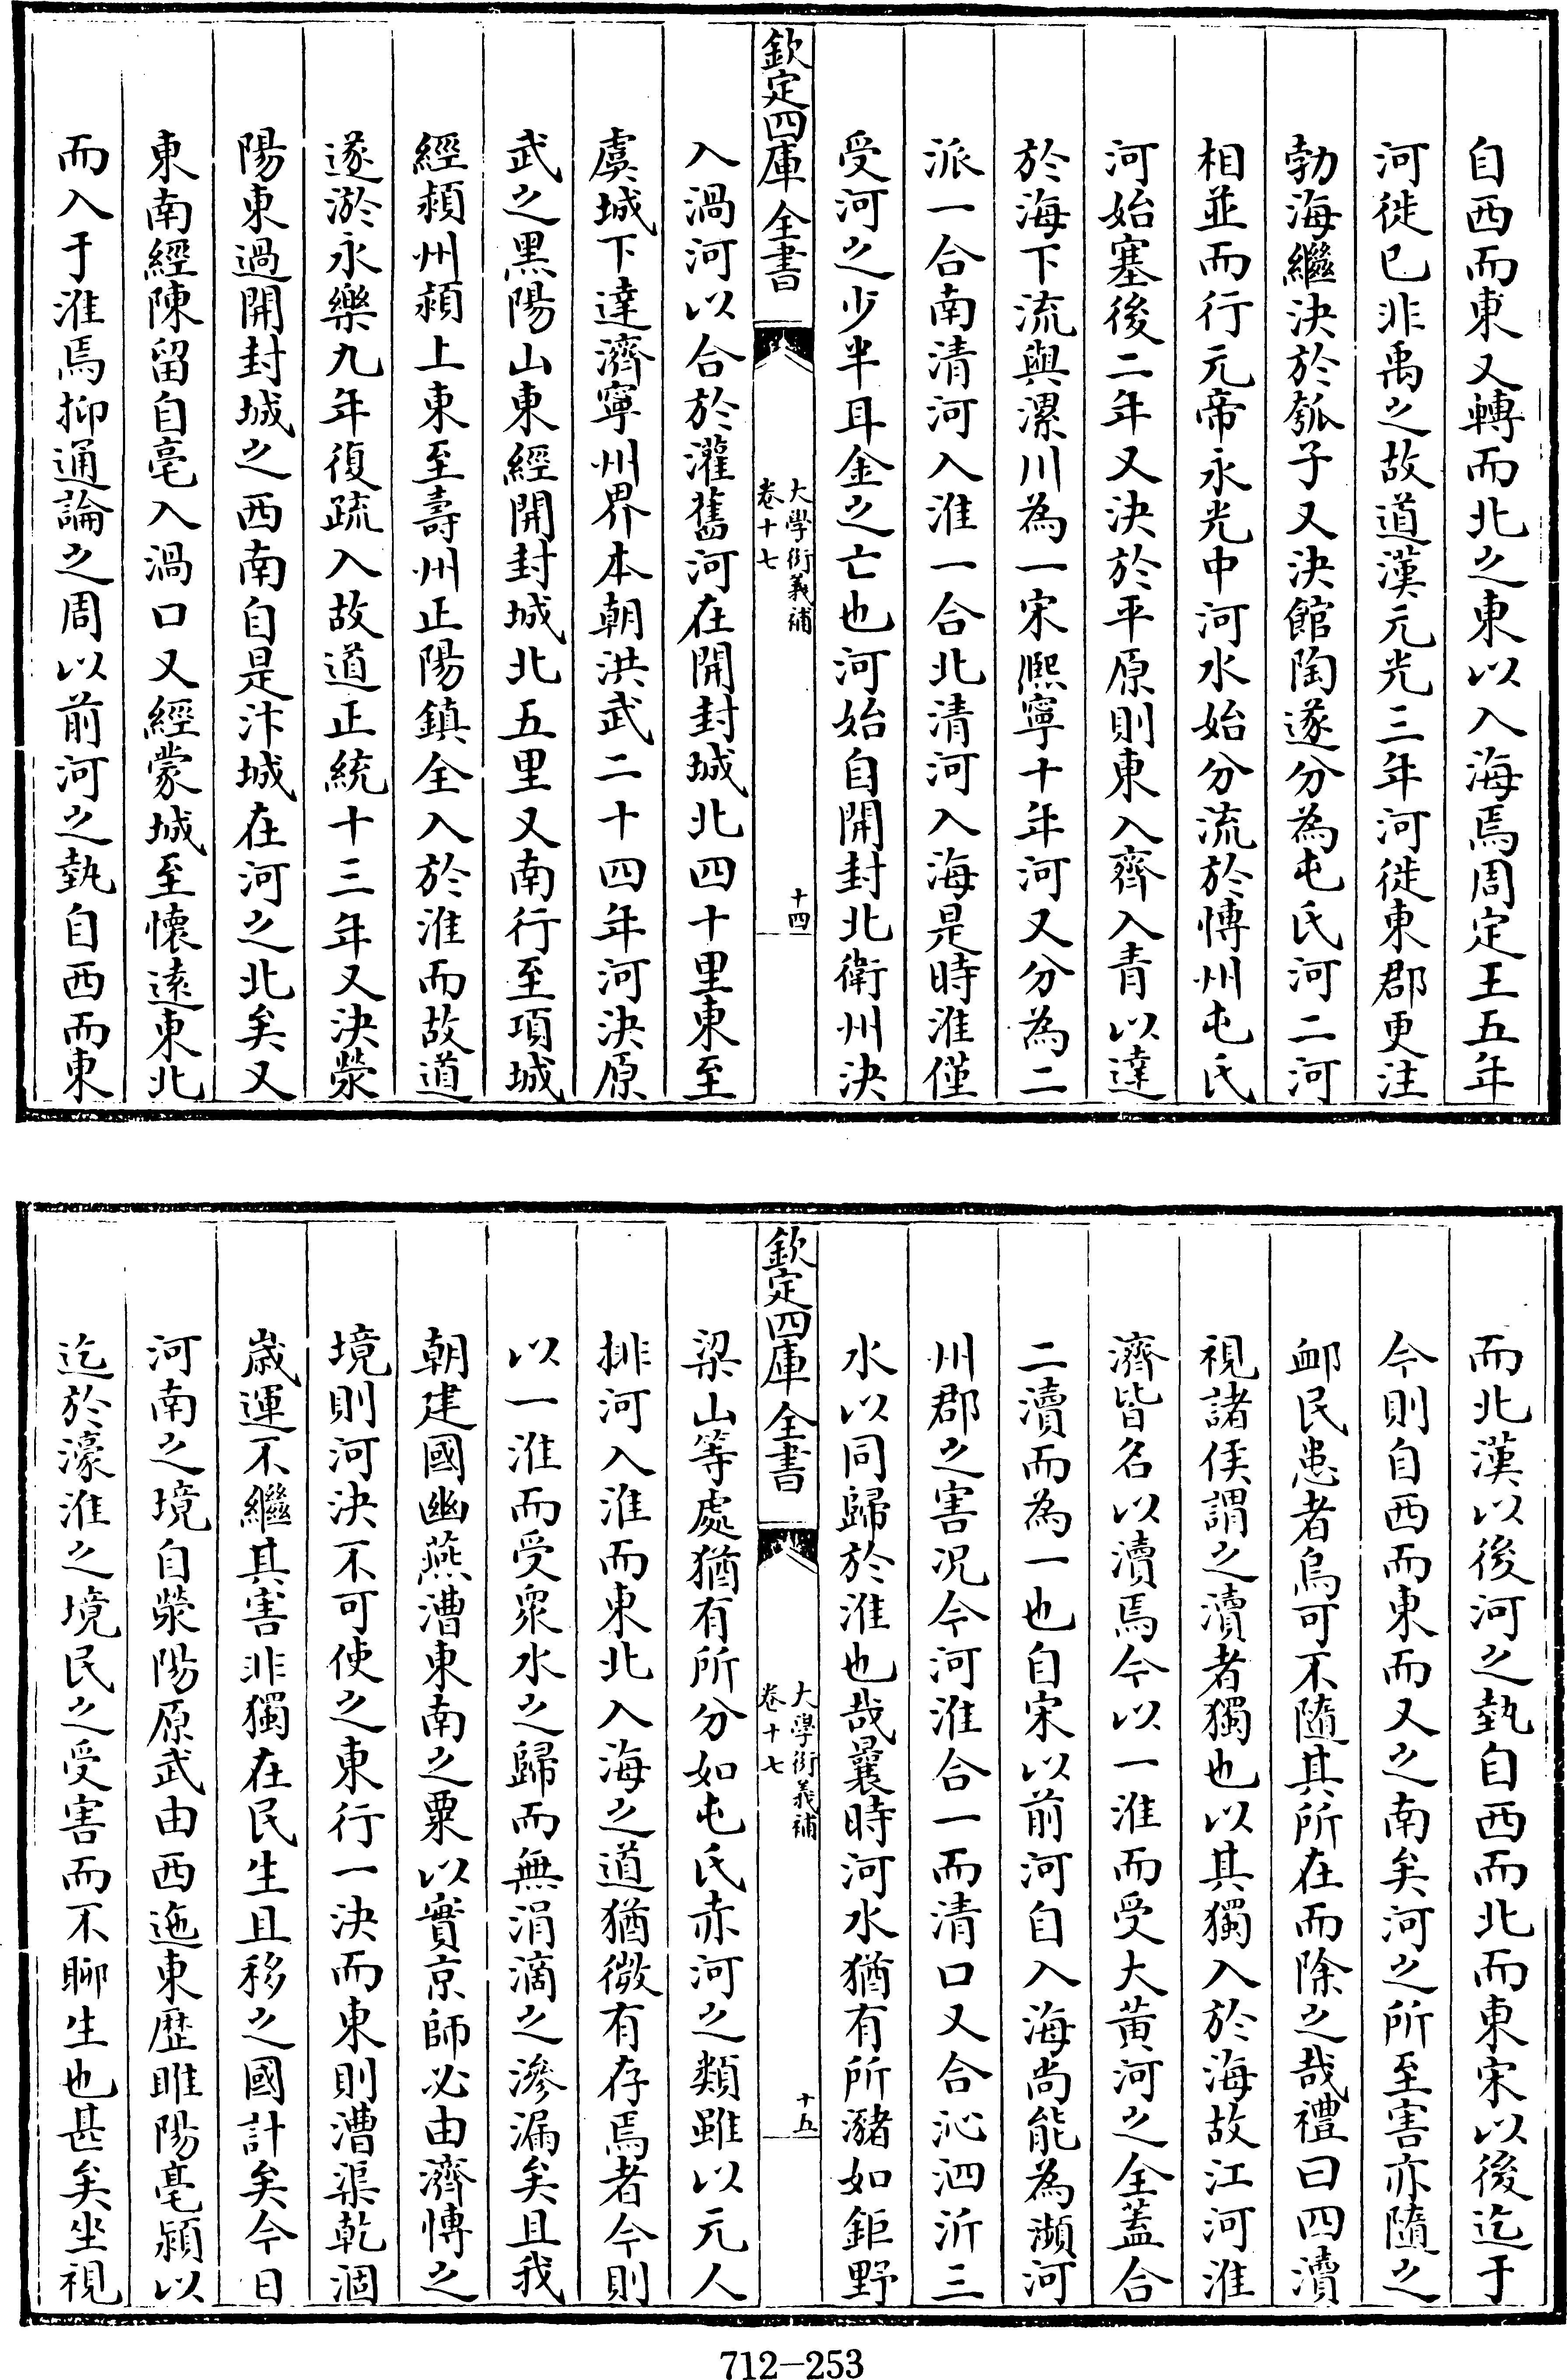 自西而東又轉而北之東以入海焉周定王五年
河徙已非禹之故道漢元光三年河徙東郡更注
勃海繼決於瓠子又決館陶遂分為屯氏河二河
相並而行元帝永光中河水始分流於博州屯氏
河始塞後二年又決於平原則東入齊入青以達
於海下流與漯川為一宋熙寧十年河又分為二
派一合南清河入淮一合北清河入海是時淮僅
受河之少半耳金之亡也河始自開封北衛州決
欽定四庫全書
大學衍義補
卷十七
十四
入渦河以合於灌舊河在開封城北四十里東至
虞城下達濟寧州界本朝洪武二十四年河決原
武之黑陽山東經開封城北五里又南行至項城
經潁州潁上東至壽州正陽鎮全入於淮而故道
遂淤永樂九年復疏入故道正統十三年又決滎
陽東過開封城之西南自是汴城在河之北矣又
東南經陳留自亳入渦口又經蒙城至懷遠東北
而入于淮焉抑通論之周以前河之埶自西而東
而北漢以後河之埶自西而北而東宋以後迄于
今則自西而東而又之南矣河之所至害亦隨之
䘏民患者烏可不隨其所在而除之哉禮曰四瀆
視諸侯謂之瀆者獨也以其獨入於海故江河淮
濟皆名以瀆焉今以一淮而受大黃河之全蓋合
二瀆而為一也自宋以前河自入海尚能為瀕河
州郡之害況今河淮合一而清口又合沁泗沂三
水以同歸於淮也哉曩時河水猶有所瀦如鉅野
欽定四庫全書
大學衍義補
卷十七
十五
梁山等處猶有所分如屯氏赤河之類雖以元人
排河入淮而東北入海之道猶微有存焉者今則
以一淮而受眾水之歸而無涓滴之滲漏矣且我
朝建國幽燕漕東南之粟以實京師必由濟博之
境則河決不可使之東行一決而東則漕渠乾涸
歲運不繼其害非獨在民生且移之國計矣今日
河南之境自滎陽原武由西迤東歷睢陽亳潁以
迄於濠淮之境民之受害而不聊生也甚矣坐視
712-253